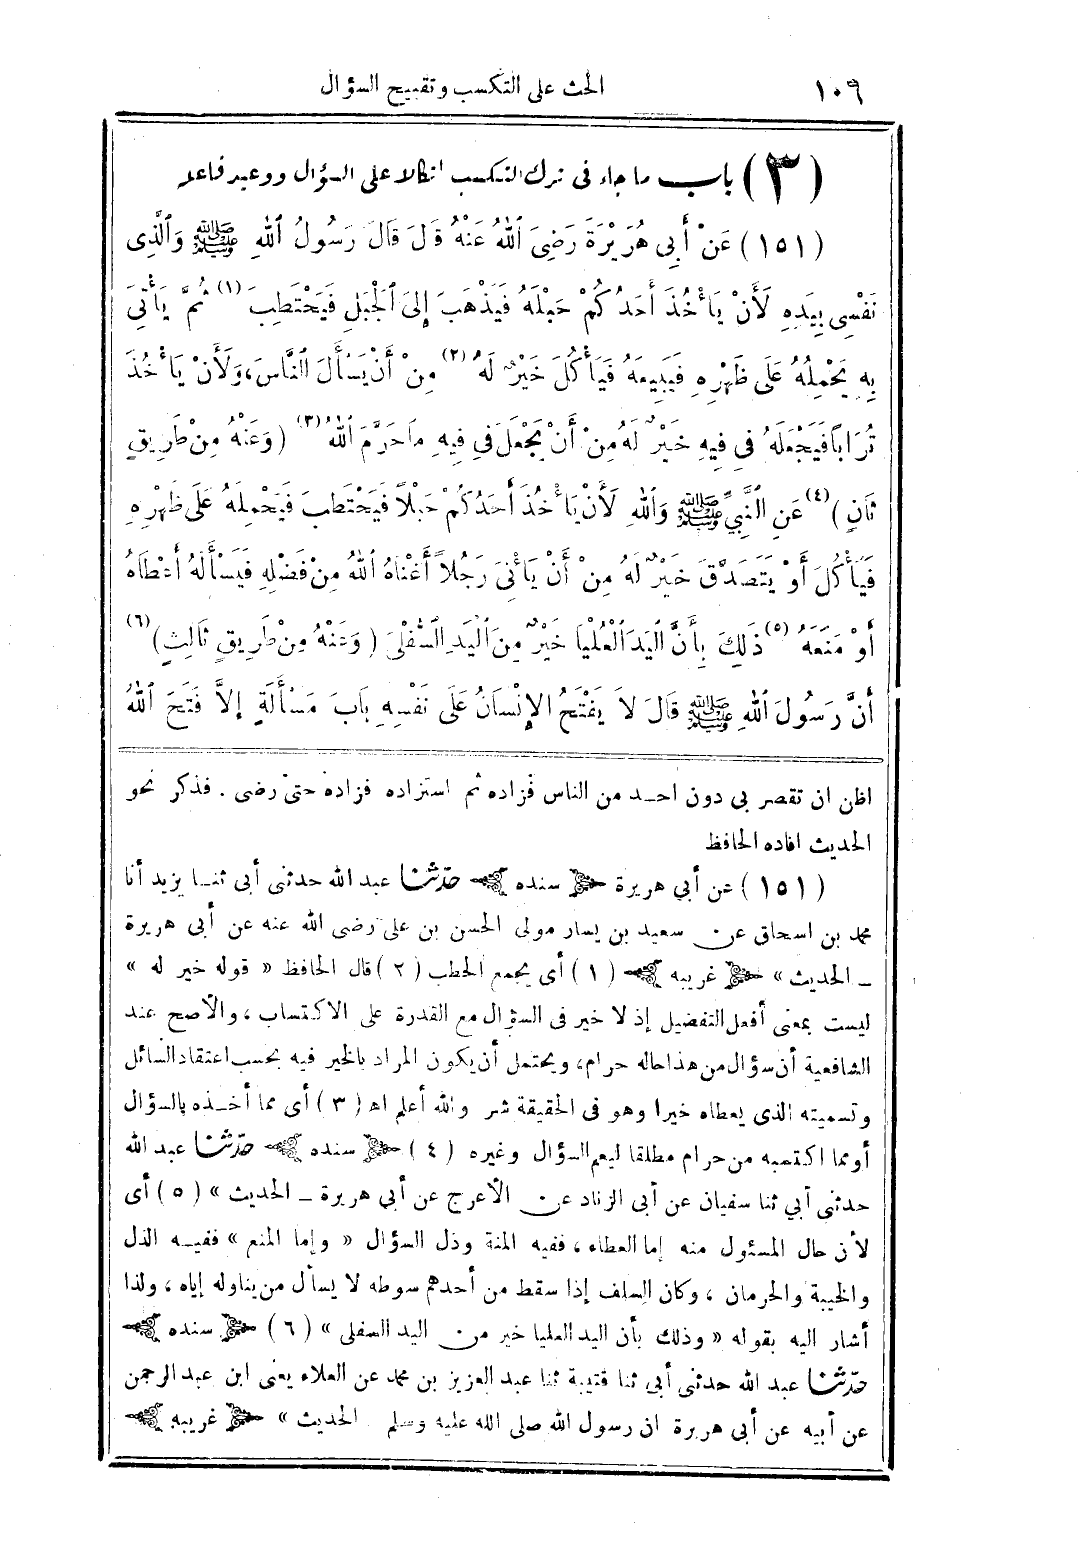 ١٠٩ الحث على التكسب وتقبيح السؤال
(٣) باب ما جاء فى ترك التكسب اتكالا على السؤال ووعيد فاعله
(١٥١) عَنْ أَبِي هُرَيْرَةَ رَضِيَ اللهُ عَنْهُ قَالَ قَالَ رَسُولُ اللهِ ﷺ وَالَّذِى
نَفْسِي بِيَدِهِ لَأَنْ يَأْخُذَ أَحَدُكُمْ حَبْلَهُ فَيَذْهَبَ إِلَى الْجَبَلِ فَيَحْتَطِبَ (١) ثُمَّ يَأْتِىَ
بِهِ يَحْمِلُهُ عَلَى ظَهْرِهِ فَيَبِيعَهُ فَيَأْكُلَ خَيْرٌ لَهُ (٢) مِنْ أَنْ يَسْأَلَ النَّاسَ، وَلَأَنْ يَأْخُذَ
تُرَابًا فَيَجْعَلَهُ فِى فِيهِ خَيْرٌ لَهُ مِنْ أَنْ يَجْعَلَ فِي فِيهِ مَا حَرَّمَ اللهُ (٣) (وَعَنْهُ مِنْ طَرِيقٍ
ثَانٍ) (٤) عَنِ النَّبِيِّ ﷺ وَاللهِ لَأَنْ يَأْخُذَ أَحَدُكُمْ حَبْلاً فَيَحْتَطِبَ فَيَحْمِلَهُ عَلَى ظَهْرِهِ
فَيَأْكُلَ أَوْ يَتَصَدَّقَ خَيْرٌ لَهُ مِنْ أَنْ يَأْتِىَ رَجُلاً أَغْنَاهُ اللهُ مِنْ فَضْلِهِ فَيَسْأَلَهُ أَعْطَاهُ
أَوْ مَنَعَهُ (٥) ذَلِكَ بِأَنَّ الْيَدَ الْعُلْيَا خَيْرٌ مِنَ الْيَدِ السُّفْلَىَ (وَعَنْهُ مِنْ طَرِيقٍ ثَالِثٍ) (٦)
أَنَّ رَسُولَ اللهِ ﷺ قَالَ لاَ يَفْتَحُ الإِنْسَانُ عَلَى نَفْسِهِ بَابَ مَسْأَلَةٍ إِلاَّ فَتَحَ اللهُ
اظن ان تقصر بى دون احد من الناس فزاده ثم استزاده فزاده حتى رضى . فذكر نحو
الحديث افاده الحافظ
(١٥١) عن أبي هريرة ﴿ سنده ﴾ حدّثنا عبد الله حدثنى أبي ثنا يزيد أنا
محمد بن اسحاق عن سعيد بن يسار مولى الحسن بن على رضى الله عنه عن أبى هريرة
ـ الحديث » ﴿ غريبه ﴾ (١) أى يجمع الحطب (٢) قال الحافظ « قوله خير له »
ليست بمعنى أفعل التفضيل إذ لا خير فى السؤال مع القدرة على الاكتساب، والأصح عند
الشافعية أن سؤال من هذا حاله حرام، ويحتمل أن يكون المراد بالخير فيه بحسب اعتقاد السائل
وتسميته الذى يعطاه خيرا وهو فى الحقيقة شر والله أعلم اهـ (٣) أى مما أخذه بالسؤال
أو مما اكتسبه من حرام مطلقا ليعم السؤال وغيره (٤) ﴿ سنده ﴾ حدّثنا عبد الله
حدثنى أبي ثنا سفيان عن أبى الزناد عن الأعرج عن أبى هريرة ـ الحديث » (٥) أى
لأن حال المسئول منه إما العطاء، ففيه المنة وذل السؤال « وإما المنع » ففيه الذل
والخيبة والحرمان، وكان السلف إذا سقط من أحدهم سوطه لا يسأل من يناوله إياه، ولذا
أشار اليه بقوله « وذلك بأن اليد العليا خير من اليد السفلى » (٦) ﴿ سنده ﴾
حدّثنا عبد الله حدثنى أبي ثنا قتيبة ثنا عبد العزيز بن محمد عن العلاء يعنى ابن عبد الرحمن
عن أبيه عن أبى هريرة ان رسول الله صلى الله عليه وسلم الحديث » ﴿ غريبه ﴾